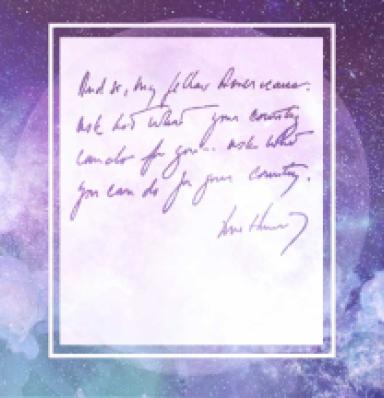 And so, my fellow Americans:
ask not what your country
can do for you - ask what
you can do for your country.